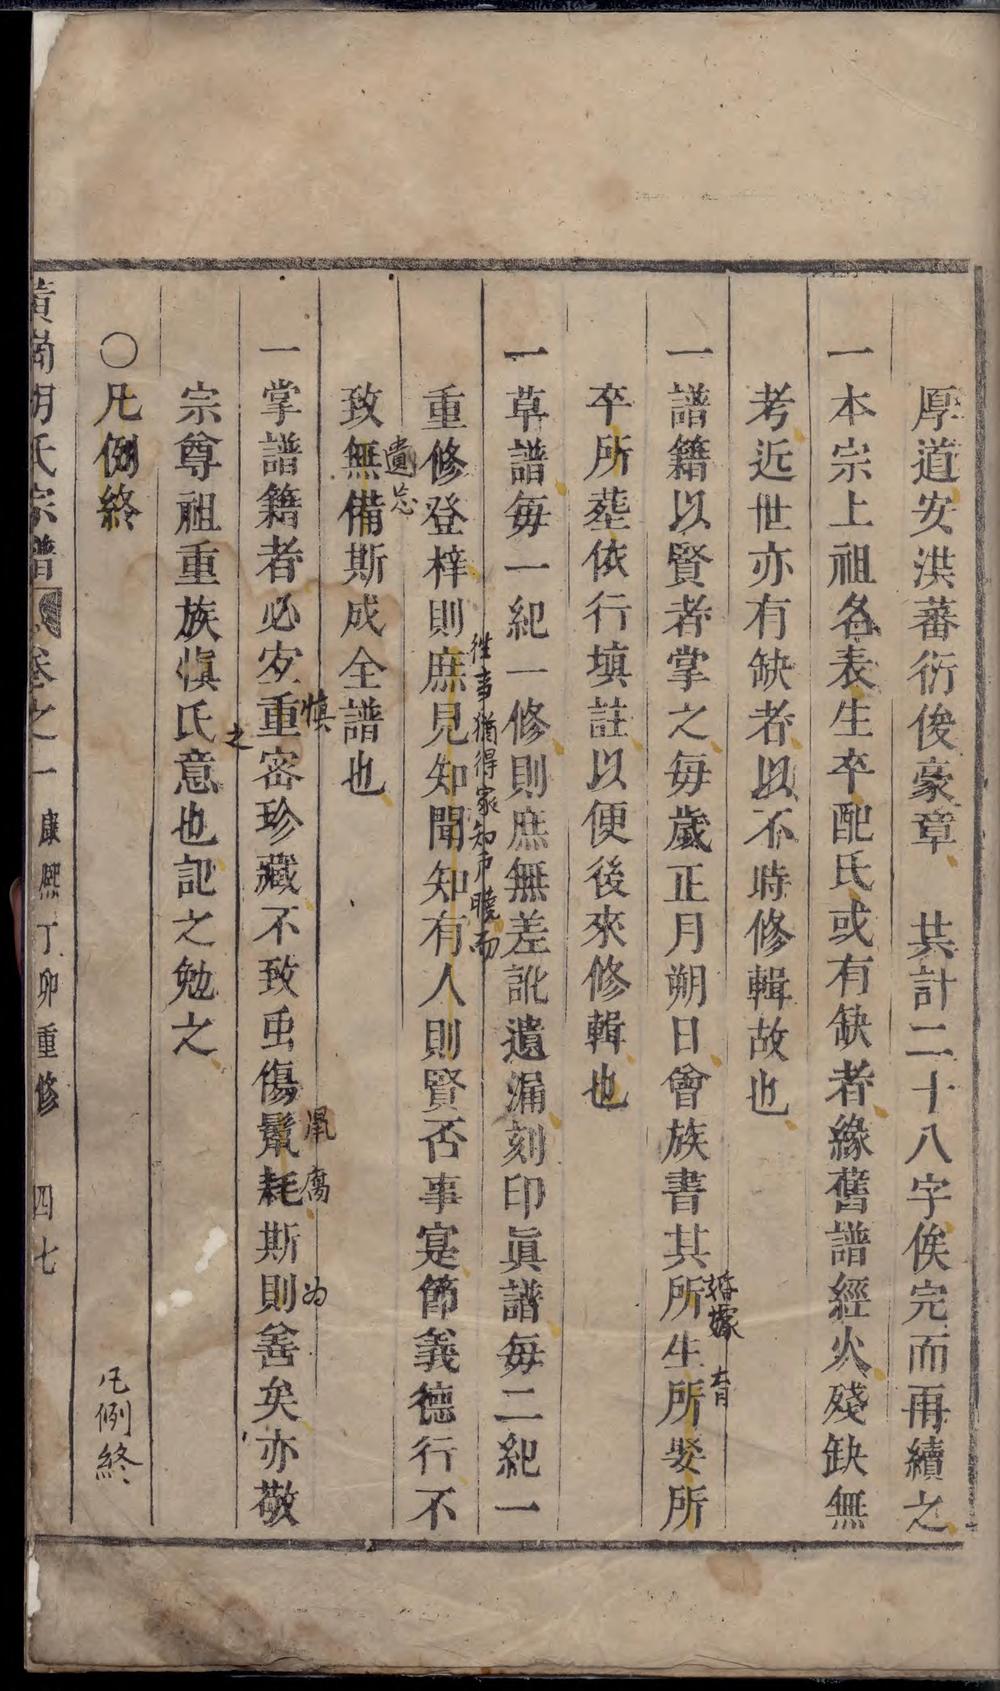 厚道安洪蕃衍俊豪章　其計二十八字俟完而再續之
一本宗上祖各表生卒配氏或有缺者緣舊譜經火殘缺無
考近世亦有缺者以不時修輯故也
一譜籍以賢者掌之每歲正月朔日會族書其所生所娶所
婚嫁　育
卒所塟依行填註以便後來修輯也
一草譜每一紀一修則庶無差訛遺漏刻印眞譜每二紀一
往事猶得家知戶曉而
重修登梓則庶見知聞知有人則賢否事寔節義德行不
遺忘
致無備斯成全譜也
慎　鼠腐　为
一掌譜籍者必安重密珍藏不致虫傷鬣耗斯則善矣亦敬
之
宗尊祖重族慎氏意也記之勉之
○凡例終
凡例終
黄岡胡氏宗譜　卷之一　康熙丁卯重修　四七